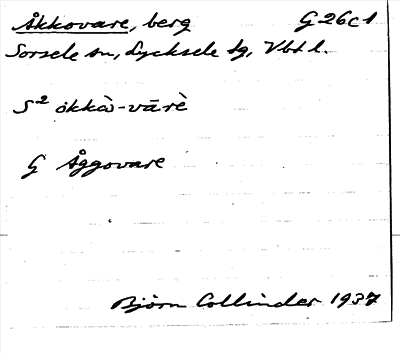 Åkkovare, berg G 26c1
Sorsele sn, Lycksele lg, Vbt l.
S² åkkò-vārè
G Åggovare
Björn Collinder 1937